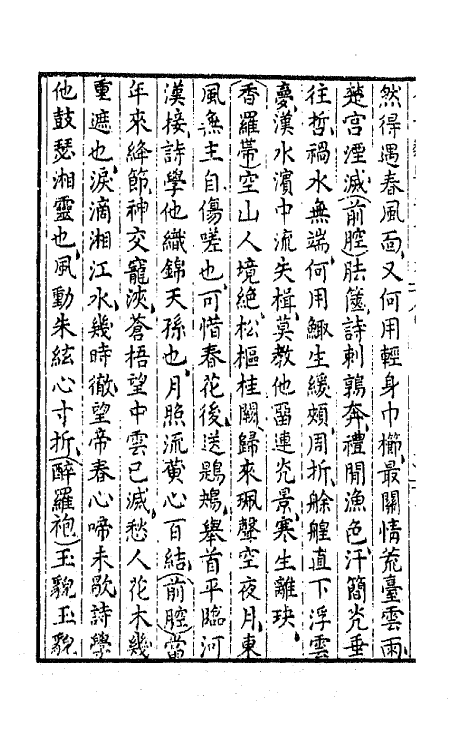 然得遇春風面又何用輕身巾櫛最關情荒臺雲雨
楚宮湮滅（前腔）胠篋詩刺鶉奔禮閒漁色汗簡光垂
往哲禍水無端何用鯫生緩頰周折艅艎直下浮雲
夢漢水濱中流失楫莫教他畱連光景寒生離玦
（香羅帶）空山人境絶松樞桂闕歸來珮聲空夜月東
風無主自傷嗟也可惜春花後送鶗鴂舉首平臨河
漢接詩學他織錦天孫也月照流黃心百結（前腔）當
年來絳節神交寵浹蒼梧望中雲已滅愁人花木幾
重遮也淚滴湘江水幾時徹望帝春心啼未歇詩學
他鼓瑟湘靈也風動朱絃心寸折（醉羅袍）玉貌玉貌